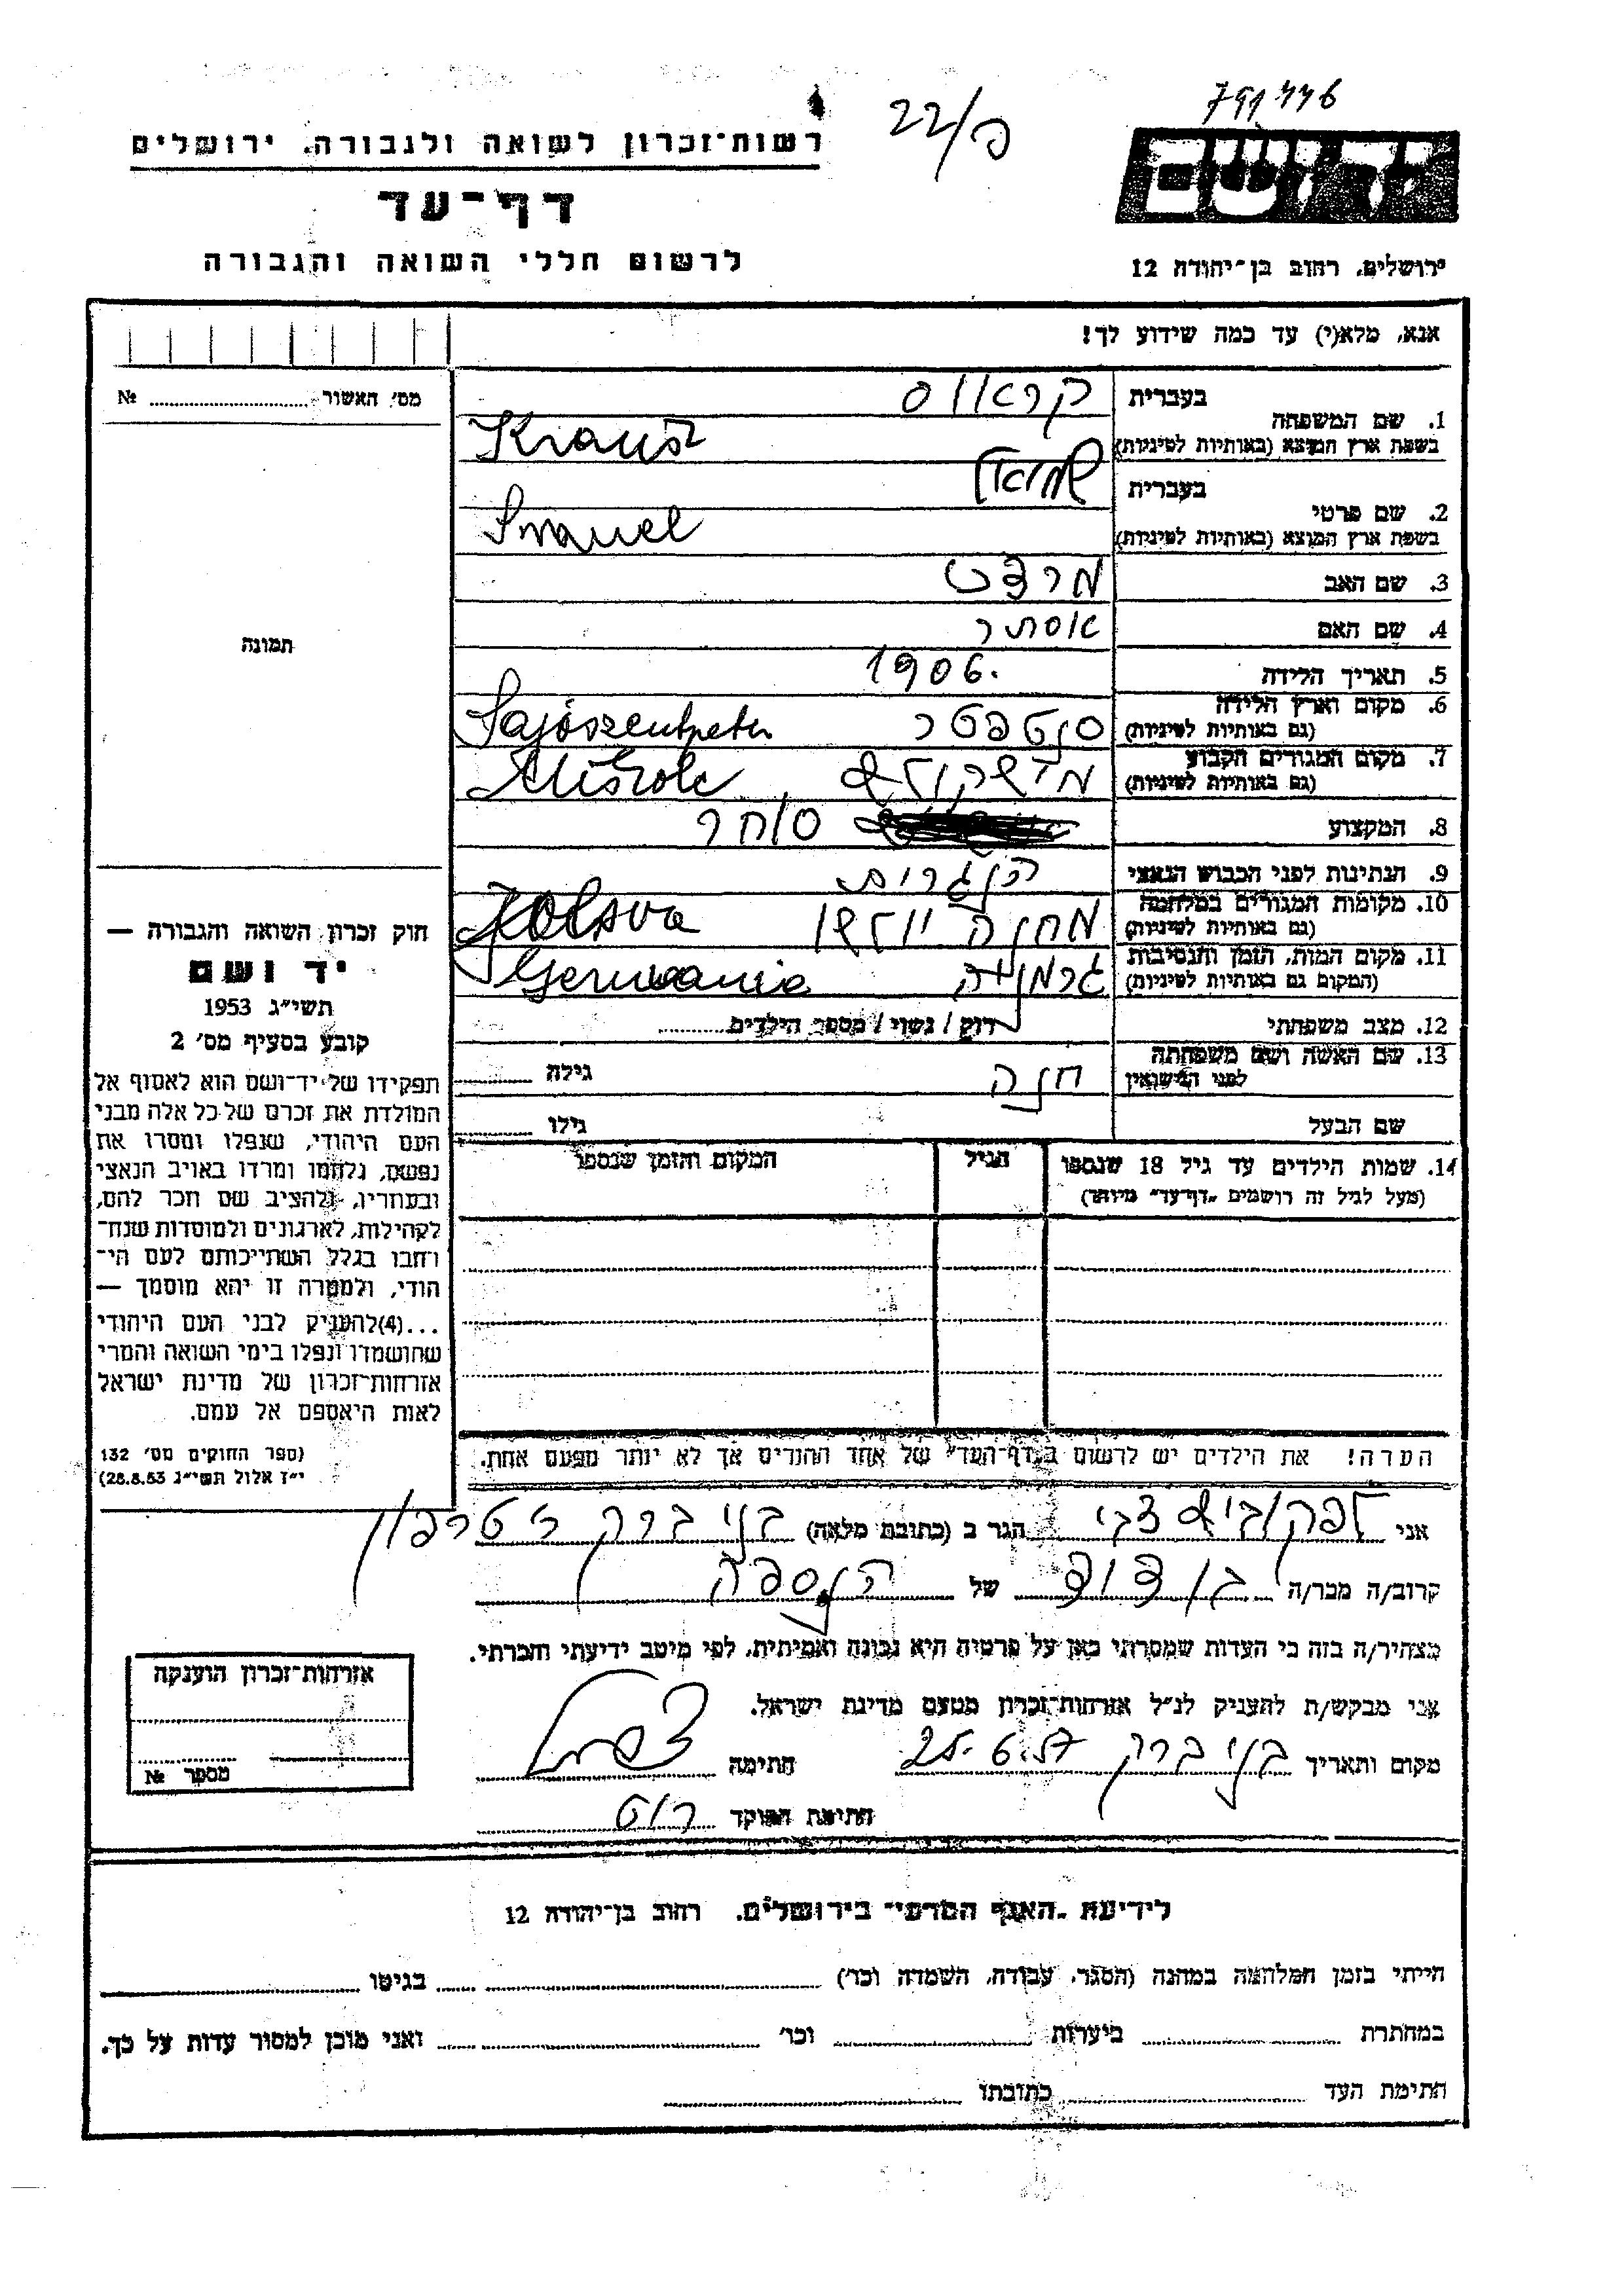 791446
22/פ
יד ושם
ירושלים, רחוב בן־יהודה 12
רשות־זכרון לשואה ולגבורה, ירושלים
דף־עד
לרשום חללי השואה והגבורה
אנא, מלא(י) עד כמה שידוע לך!
מס׳ האשור № 
תמונה
1. שם המשפחה
בעברית קראוס
בשפת ארץ המוצא (באותיות לטיניות) Krausz
2. שם פרטי
בעברית שמואל
בשפת ארץ המוצא (באותיות לטיניות) Smauel
3. שם האב
4. שם האם אסתר
5. תאריך הלידה 1906.
6. מקום וארץ הלידה (גם באותיות לטיניות) סנטפטר Sajószentpeter
7. מקום המגורים הקבוע (גם באותיות לטיניות) מישקולץ Miskolc
8. המקצוע סוחר
9. הנתינות לפני הכבוש הנאצי הונגרית
10. מקומות המגורים במלחמה (גם באותיות לטיניות) מחנה Jolsva
11. מקום המות, הזמן והנסיבות (המקום גם באותיות לטיניות) גרמניה Germania
12. מצב משפחתי רוק / נשוי / מספר הילדים
13. שם האשה ושם משפחתה לפני הנישואין חנה גילה
שם הבעל גילו
14. שמות הילדים עד גיל 18 שנספו
(מעל לגיל זה רושמים „דף־עד״ מיוחד)
הגיל
המקום והזמן שנספו
הערה! את הילדים יש לרשום ב„דף־העד״ של אחד ההורים אך לא יותר מפעם אחת.
חוק זכרון השואה והגבורה —
יד ושם
תשי״ג 1953
קובע בסעיף מס׳ 2
תפקידו של יד־ושם הוא לאסוף אל
המולדת את זכרם של כל אלה מבני
העם היהודי, שנפלו ומסרו את
נפשם, נלחמו ומרדו באויב הנאצי
ובעוזריו, ולהציב שם וזכר להם,
לקהילות, לארגונים ולמוסדות שנח־
רבו בגלל השתייכותם לעם הי־
הודי, ולמטרה זו יהא מוסמך —
...(4) להעניק לבני העם היהודי
שהושמדו ונפלו בימי השואה והמרי
אזרחות־זכרון של מדינת ישראל
לאות היאספם אל עמם.
(ספר החוקים מס׳ 132
י״ז אלול תשי״ג 28.8.53)
אני לפקוביץ צבי הגר ב (כתובת מלאה) בני ברק טרפון
קרוב/ה מכר/ה בן דוד של הנספה
מצהיר/ה בזה כי העדות שמסרתי כאן על פרטיה היא נכונה ואמיתית, לפי מיטב ידיעתי והכרתי.
אני מבקש/ת להעניק לנ״ל אזרחות־זכרון מטעם מדינת ישראל.
מקום ותאריך בני ברק 25.6.57 חתימה
חתימת הפוקד רוט
אזרחות־זכרון הוענקה
מספר №
לידיעת „האגף המדעי״ בירושלים, רחוב בן־יהודה 12
הייתי בזמן המלחמה במחנה (הסגר, עבודה, השמדה וכו׳) בגיטו
במחתרת ביערות וכו׳ ואני מוכן למסור עדות על כך.
חתימת העד כתובתו